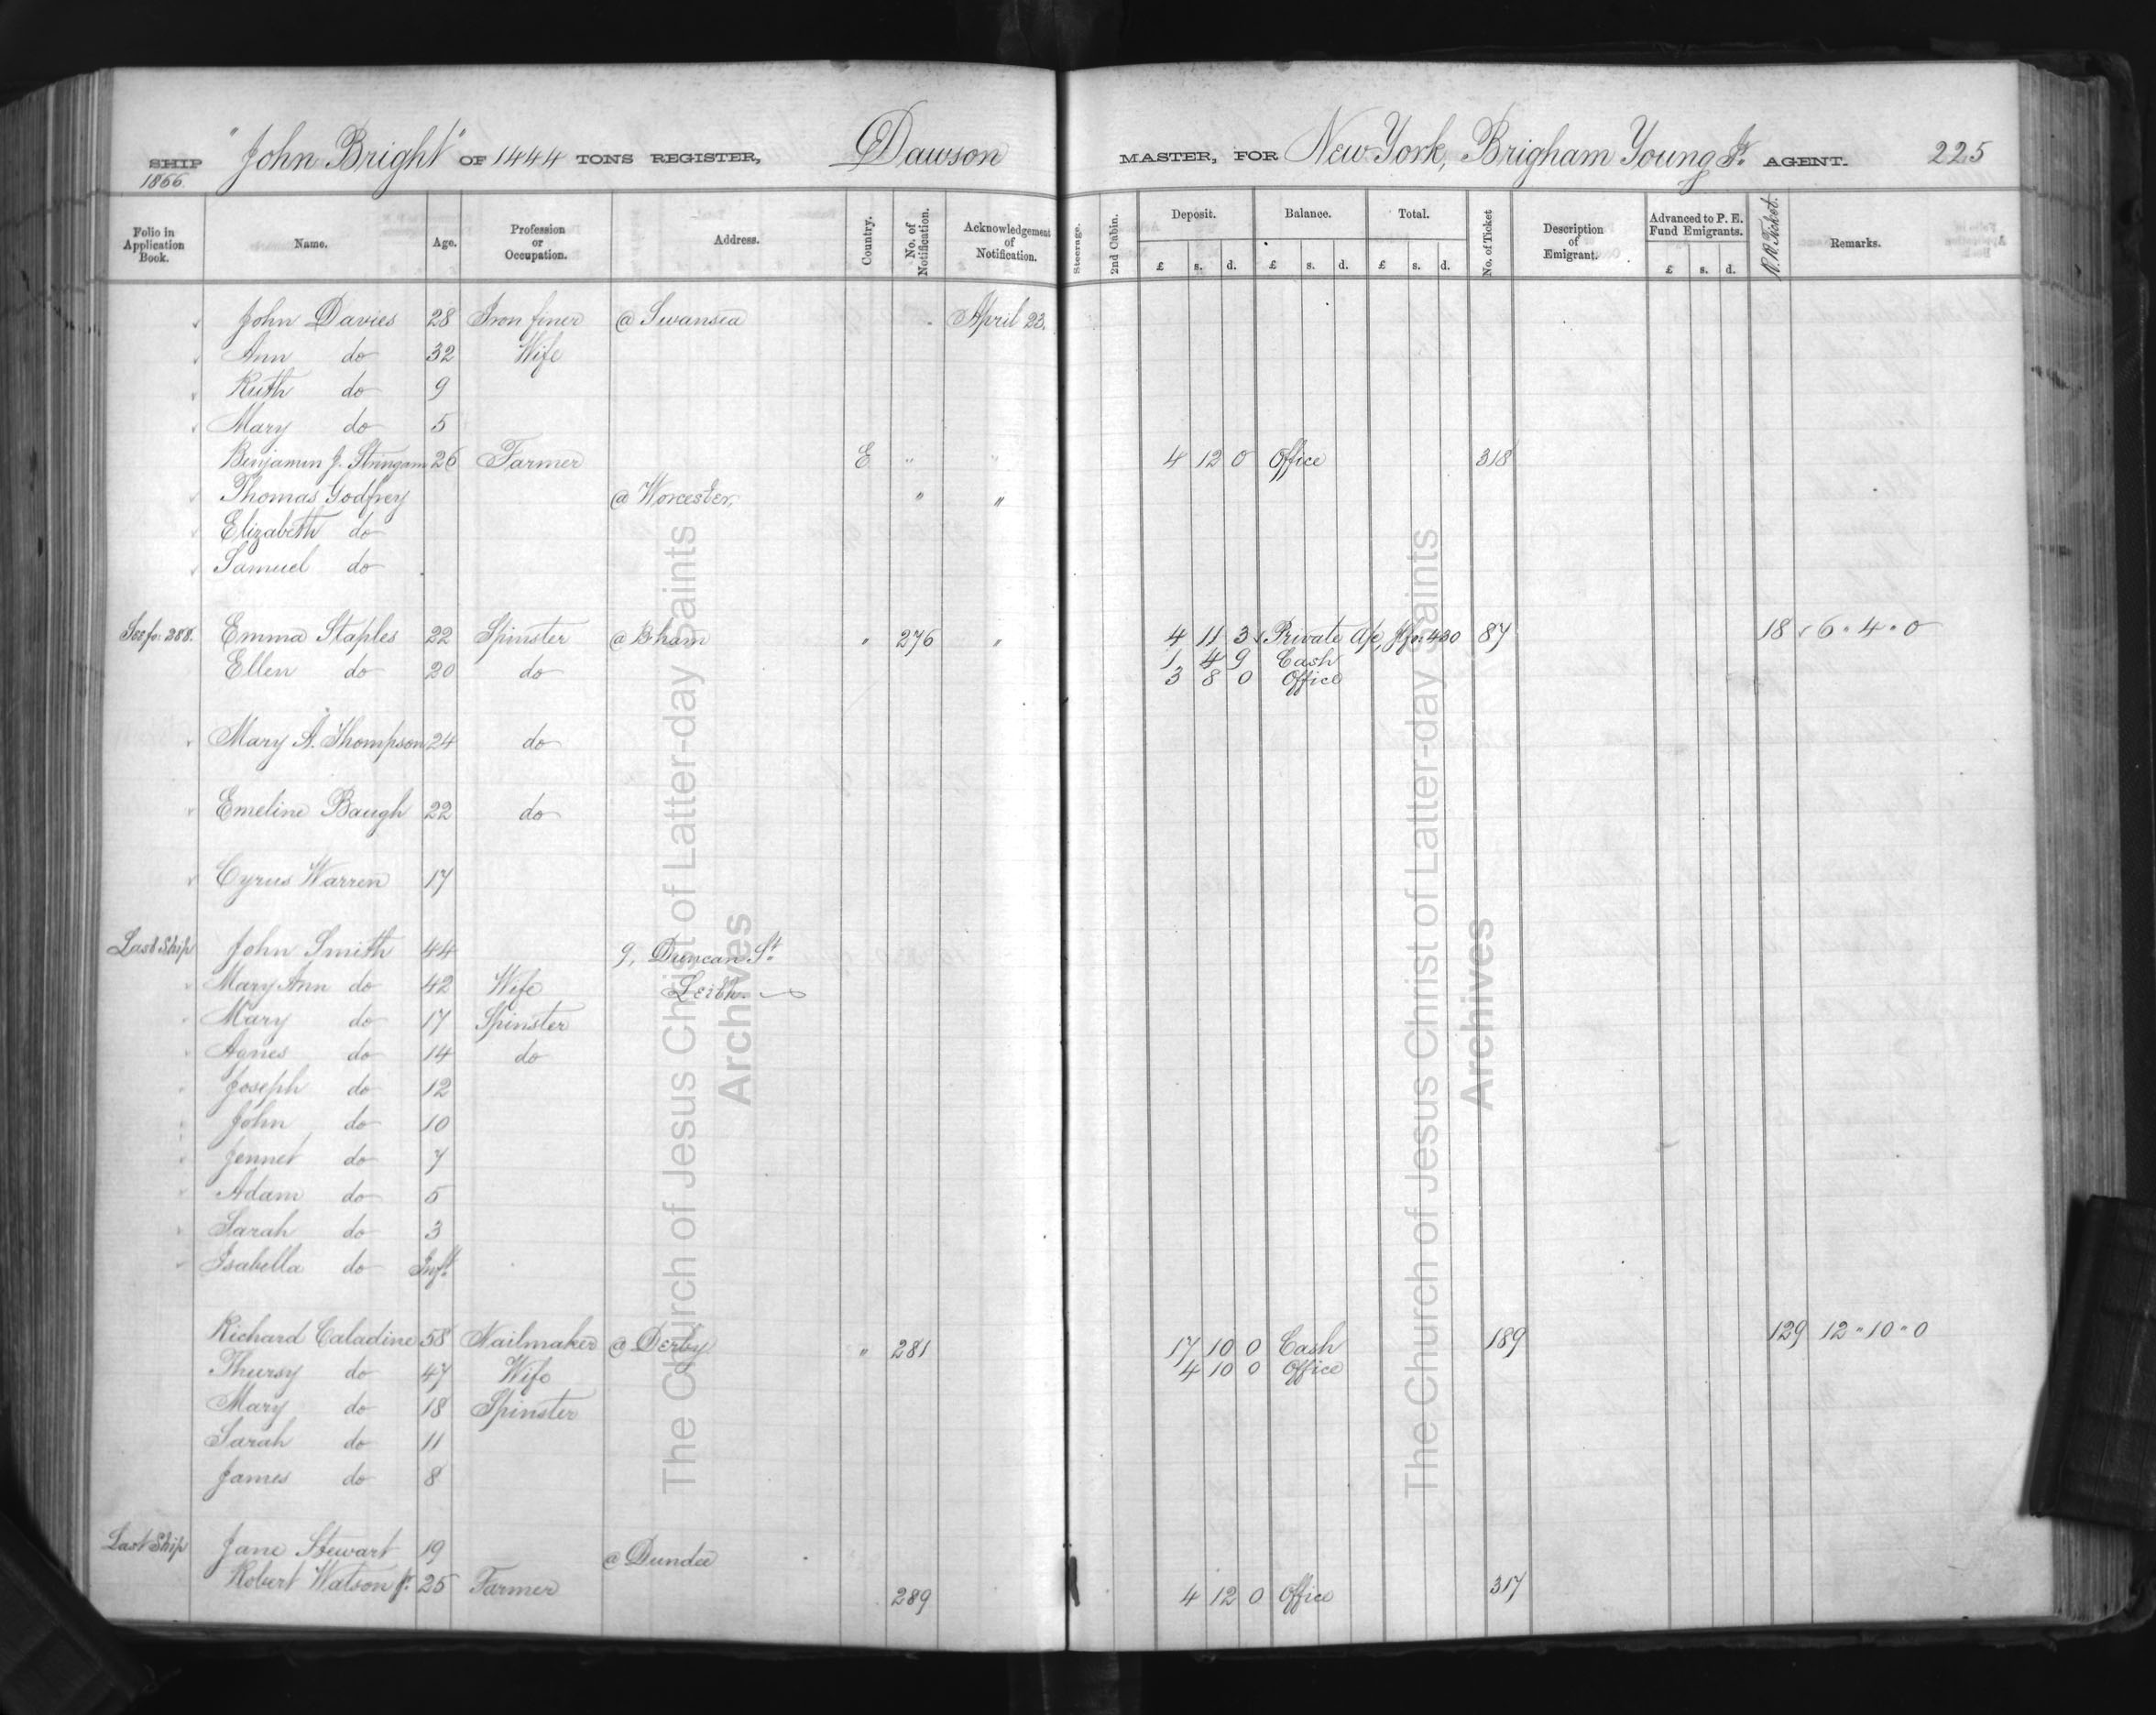 SHIP "John Bright" OF 1444 TONS REGISTER, Dawson MASTER, FOR New York, Brigham Young Jr. AGENT. 225
1866.
Folio in Application Book. Name. Age. Profession or Occupation. Address. Country. No. of Notification. Acknowledgement of Notification. Steerage. 2nd Cabin. Deposit. £ s. d. Balance. £ s. d. Total. £ s. d. No. of Ticket Description of Emigrant. Advanced to P. E. Fund Emigrants. £ s. d. R.R. Ticket. Remarks.
John Davies 28 Iron finer @ Swansea April 23.
Ann do 32 Wife
Ruth do 9
Mary do 5
Benjamin J. Stringam 26 Farmer E " " 4 12 0 Office 318
Thomas Godfrey @ Worcester, " "
Elizabeth do
Samuel do
See fo: 288. Emma Staples 22 Spinster @ B'ham " 276 " 4 11 3 Private a/c, 430 87 18 6 " 4 " 0
1 4 9 Cash
Ellen do 20 do 3 8 0 Office
Mary A. Thompson 24 do
Emeline Baugh 22 do
Cyrus Warren 17
Last Ship John Smith 44 9, Duncan St.
" Mary Ann do 42 Wife Leith.
" Mary do 17 Spinster
" Agnes do 14 do
" Joseph do 12
" John do 10
" Jennet do 7
" Adam do 5
" Sarah do 3
" Isabella do Inft.
Richard Caladine 58 Nailmaker @ Derby " 281 17 10 0 Cash 189 129 12 " 10 " 0
Thursy do 47 Wife 4 10 0 Office
Mary do 18 Spinster
Sarah do 11
James do 8
Last Ship Jane Stewart 19 @ Dundee
Robert Watson Jr. 25 Farmer 289 4 12 0 Office 317
The Church of Jesus Christ of Latter-day Saints
Archives
The Church of Jesus Christ of Latter-day Saints
Archives